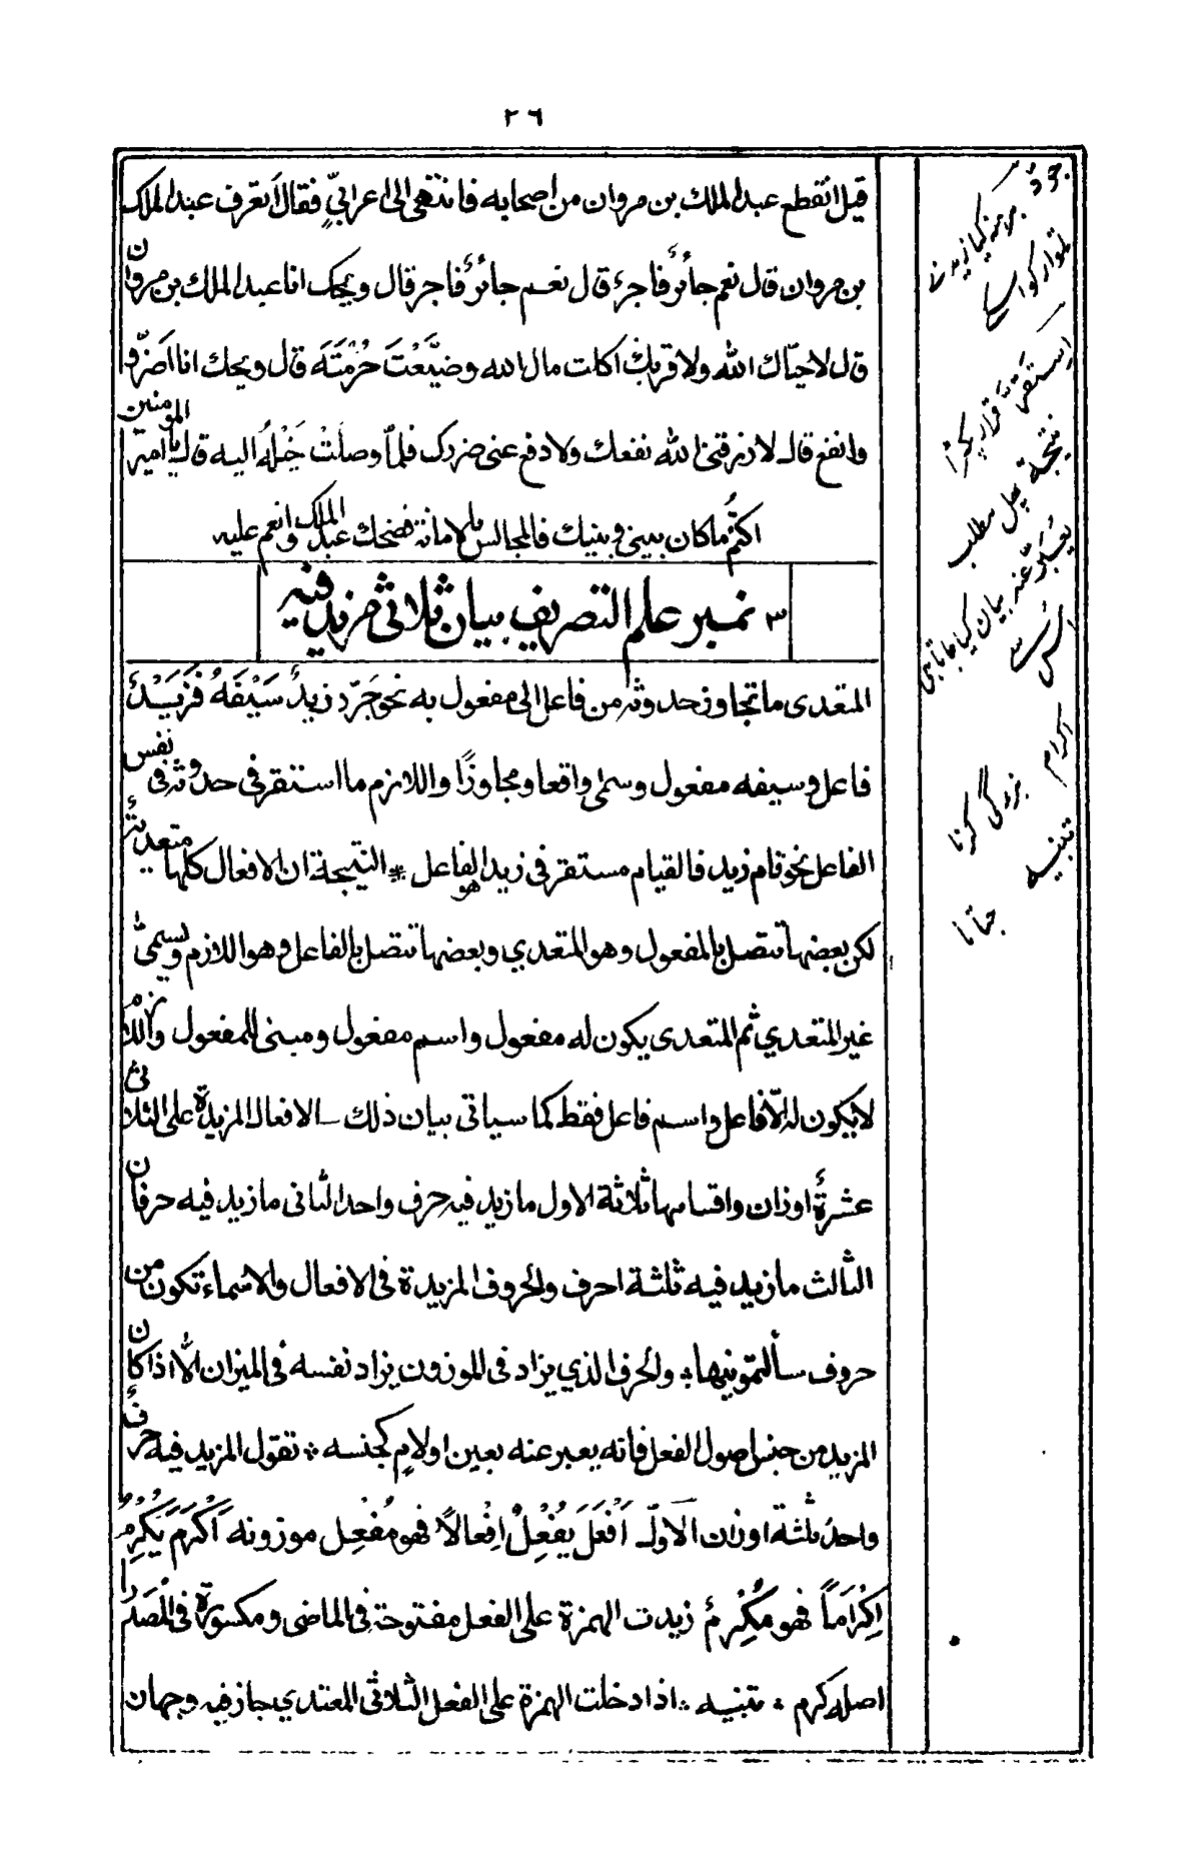 ٢٦
قيل انقطع عبد الملك بن مروان من اصحابه فانتهى الى اعرابيٍّ فقال أتعرف عبد الملك
بن مروان قال نعم جائرٌ فاجرٌ قال نعم جائرٌ فاجر قال ويحك انا عبد الملك بن مروان
قال لا حيّاك الله ولا قربك اكلت مال الله وضيَّعْتَ حُرْمَتَهُ قال ويحك انا اضرّ و
وانفع قال لا رزقنى الله نفعك ولا دفع عنى ضرك فلمّا وصلتْ خَيْلُه اليه قال يا امير المومنين
اكتُمْ ما كان بينى و بينك فالمجالس بالامانة فضحك عبد الملك وانعم عليه
٣ نمبر علم التصريف بيان ثلاثى مزيد فيه
المتعدى ما تجاوز حدوثه من فاعل الى مفعول به نحو جَرّد زيدٌ سَيْفَهُ فَزَيْدٌ
فاعل و سيفه مفعول وسمى واقعا ومجاوزًا واللازم ما استقر فى حدوثه فى نفس
الفاعل نحو قام زيد فالقيام مستقر فى زيد هو الفاعل * النتيجة ان الافعال كلها متعديةٌ
لكن بعضها تتصل بالمفعول وهو المتعدي وبعضها تتصل بالفاعل و هو اللازم ويسمىٰ
غير المتعدي ثم المتعدى يكون له مفعول واسم مفعول ومبنى للمفعول واللازم
لا يكون له الّا فاعل و اسم فاعل فقط كما سياتى بيان ذلك ـ الافعال المزيدة على الثلاثى
عشرةُ اوزان واقسامها ثلاثة الاول ما زيد فيه حرف واحد الثانى ما زيد فيه حرفان
الثالث ما زيد فيه ثلثة احرف والحروف المزيدة فى الافعال والاسماء تكون من
حروف سألتمونيها ؞ والحرف الذي يزاد فى الموزون يزاد نفسه فى الميزان الّا اذا كان
المزيد من جنس اصول الفعل فانه يعبر عنه بعين او لامٍ كجنسه ؞ تقول المزيد فيه حرفٌ
واحدٌ ثلثة اوزان الاوّل اَفْعَلَ يُفْعِلُ اِفْعالًا فهو مُفْعِل موزونه اَكْرَمَ يُكْرِمُ
اِكْرَاماً فهو مُكْرِمٌ زيدت الهمزة على الفعل مفتوحة فى الماضى ومكسورة فى المصدر
اصله كرم ؞ تنبيه ؞ اذا دخلت الهمزة على الفعل الثلاثى المعتدي جاز فيه وجهان
جرّد برهنه كيا زيد نے
تلوار كو اسے
اِستقرّ قرار پکڑا
نتيجة پهل مطلب
يُعَبّر عنه بيان كيا جاتا ہى
اس سے
اكرام بزرگى كرنا
تنبيه جتانا